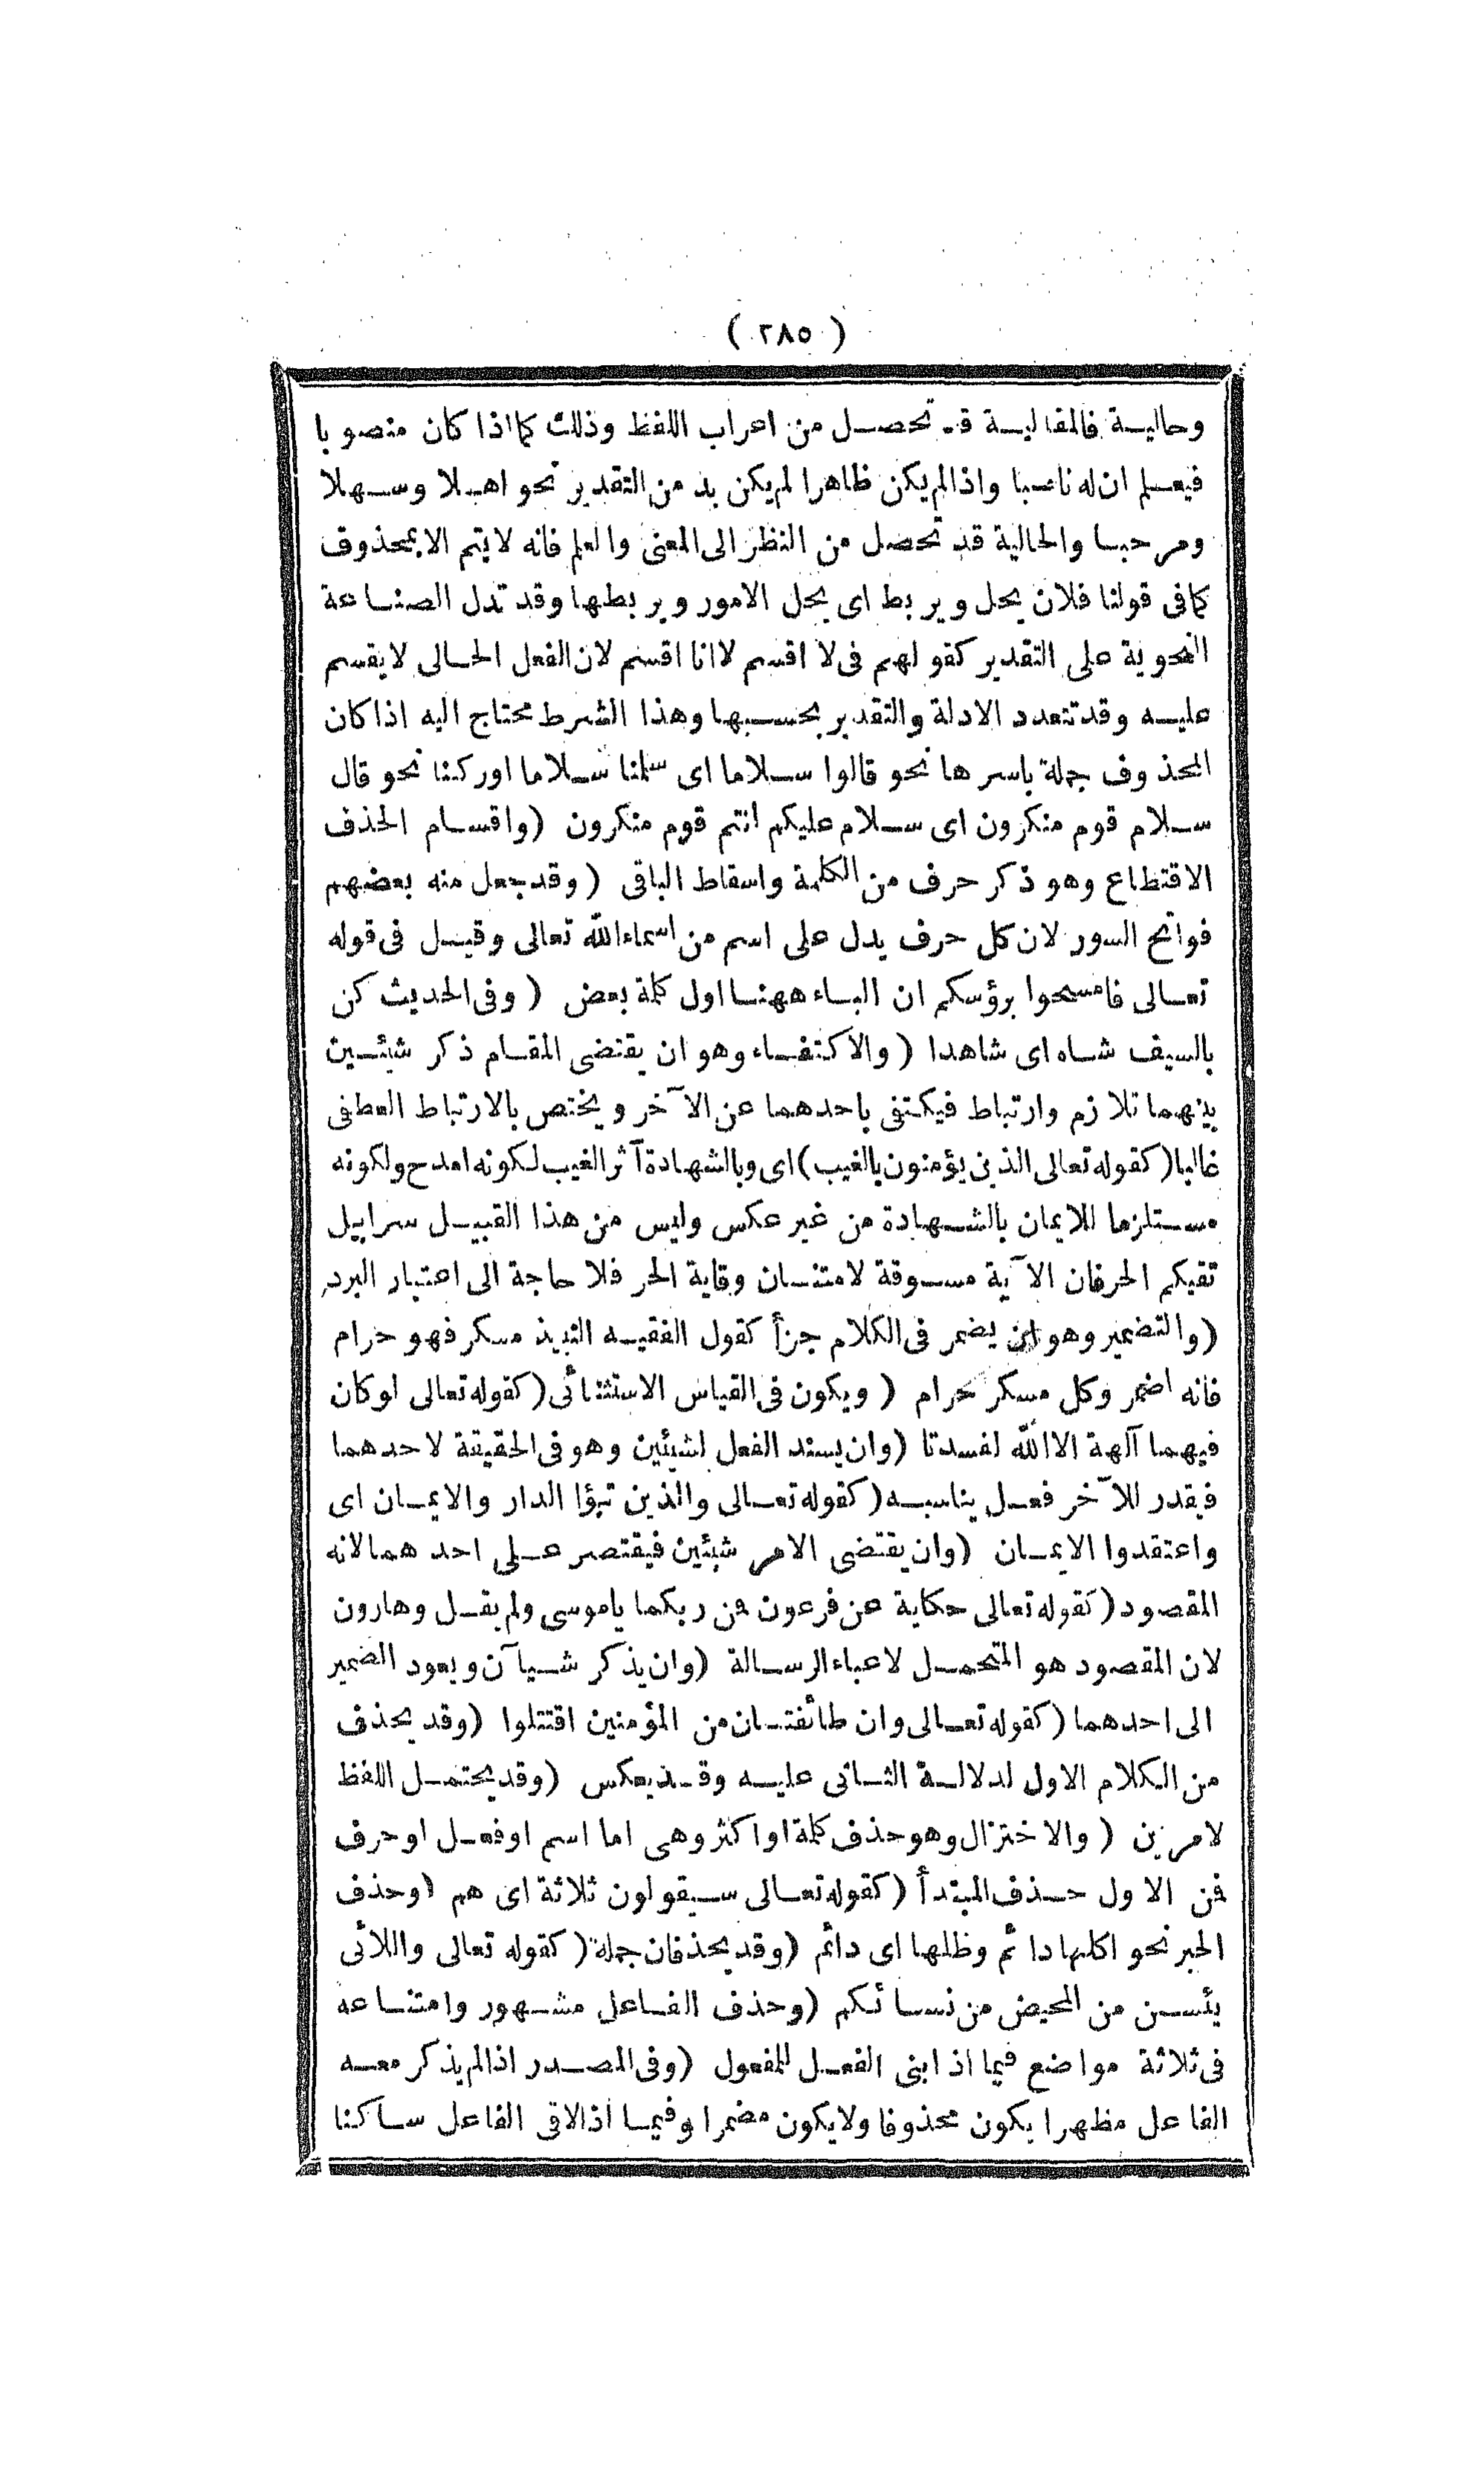 ( ٢٨٥ )
وحالية فالمقالية قد تحصل من اعراب اللفظ وذلك كما اذا كان منصوبا
فيعلم ان له ناصبا واذا لم يكن ظاهرا لم يكن بد من التقدير نحو اهلا وسهلا
ومرحبا والحالية قد تحصل من النظر الى المعنى والعلم فانه لا يتم الا بمحذوف
كما فى قولنا فلان يحل ويربط اى يحل الامور ويربطها وقد تدل الصناعة
النحوية على التقدير كقولهم فى لا اقسم لا انا اقسم لان الفعل الحالى لا يقسم
عليه وقد تتعدد الادلة والتقدير بحسبها وهذا الشرط محتاج اليه اذا كان
المحذوف جملة باسرها نحو قالوا سلاما اى سلمنا سلاما او ركنا نحو قال
سلام قوم منكرون اى سلام عليكم انتم قوم منكرون (واقسام الحذف
الاقتطاع وهو ذكر حرف من الكلمة واسقاط الباقى (وقد جعل منه بعضهم
فواتح السور لان كل حرف يدل على اسم من اسماء الله تعالى وقيل فى قوله
تعالى فامسحوا برؤسكم ان الباء ههنا اول كلمة بعض (وفى الحديث كن
بالسيف شاه اى شاهدا (والاكتفاء وهو ان يقتضى المقام ذكر شيئين
بينهما تلازم وارتباط فيكتفى باحدهما عن الآخر ويختص بالارتباط العطفى
غالبا (كقوله تعالى الذين يؤمنون بالغيب) اى وبالشهادة آثر الغيب لكونه امدح ولكونه
مستلزما للايمان بالشهادة من غير عكس وليس من هذا القبيل سرابيل
تقيكم الحر فان الآية مسوقة لامتنان وقاية الحر فلا حاجة الى اعتبار البرد
(والتضمير وهو ان يضمر فى الكلام جزأ كقول الفقيه النبيذ مسكر فهو حرام
فانه اضمر وكل مسكر حرام (ويكون فى القياس الاستثنائى (كقوله تعالى لو كان
فيهما آلهة الا الله لفسدتا (وان يسند الفعل لشيئين وهو فى الحقيقة لاحدهما
فيقدر للآخر فعل يناسبه (كقوله تعالى والذين تبؤا الدار والايمان اى
واعتقدوا الايمان (وان يقتضى الامر شيئين فيقتصر على احدهما لانه
المقصود (كقوله تعالى حكاية عن فرعون فمن ربكما يا موسى ولم يقل وهارون
لان المقصود هو المتحمل لاعباء الرسالة (وان يذكر شيآن ويعود الضمير
الى احدهما (كقوله تعالى وان طائفتان من المؤمنين اقتتلوا (وقد يحذف
من الكلام الاول لدلالة الثانى عليه وقد يعكس (وقد يحتمل اللفظ
لامرين (والاختزال وهو حذف كلمة او اكثر وهى اما اسم او فعل او حرف
فمن الاول حذف المبتدأ (كقوله تعالى سيقولون ثلاثة اى هم (وحذف
الخبر نحو اكلها دائم وظلها اى دائم (وقد يحذفان جملة (كقوله تعالى واللائى
يئسن من المحيض من نسائكم (وحذف الفاعل مشهور وامتناعه
فى ثلاثة مواضع فيما اذا بنى الفعل للمفعول (وفى المصدر اذا لم يذكر معه
الفاعل مظهرا يكون محذوفا ولا يكون مضمرا وفيما اذا لاقى الفاعل ساكنا